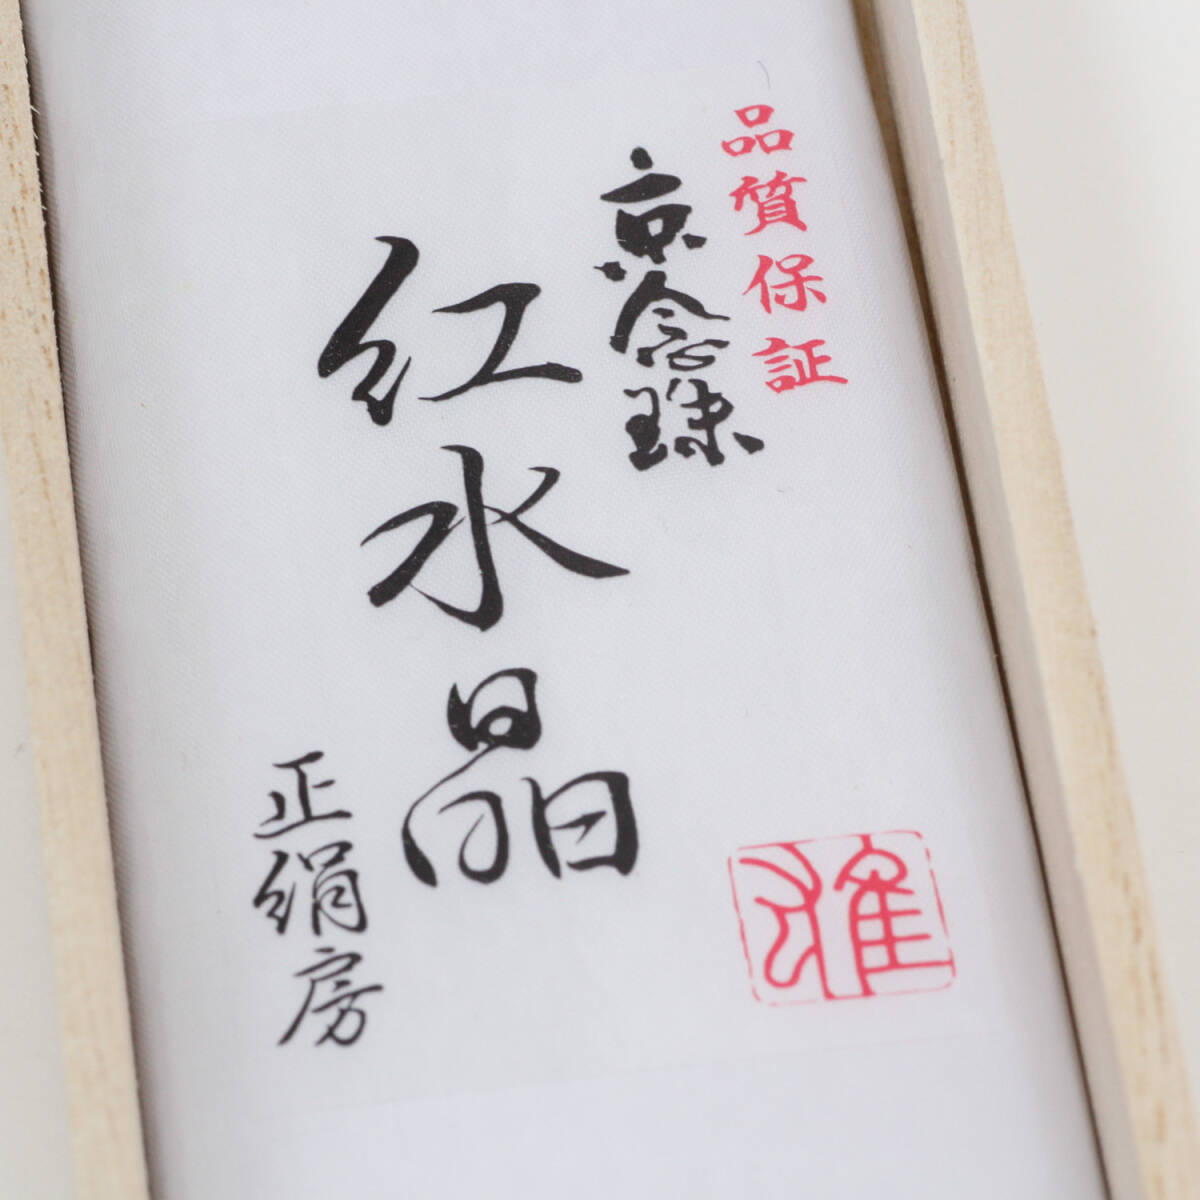 品質保証
京念珠
紅水晶
正絹房
雅